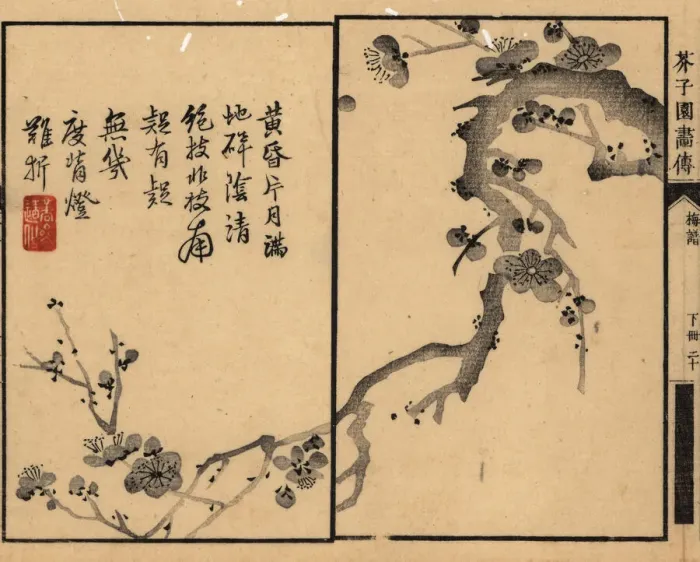 芥子園畫傳
梅譜
下冊 二十
黄昏片月滿
地碎陰清
絕枝北枝南
疑有疑
無幾
度背燈
難折